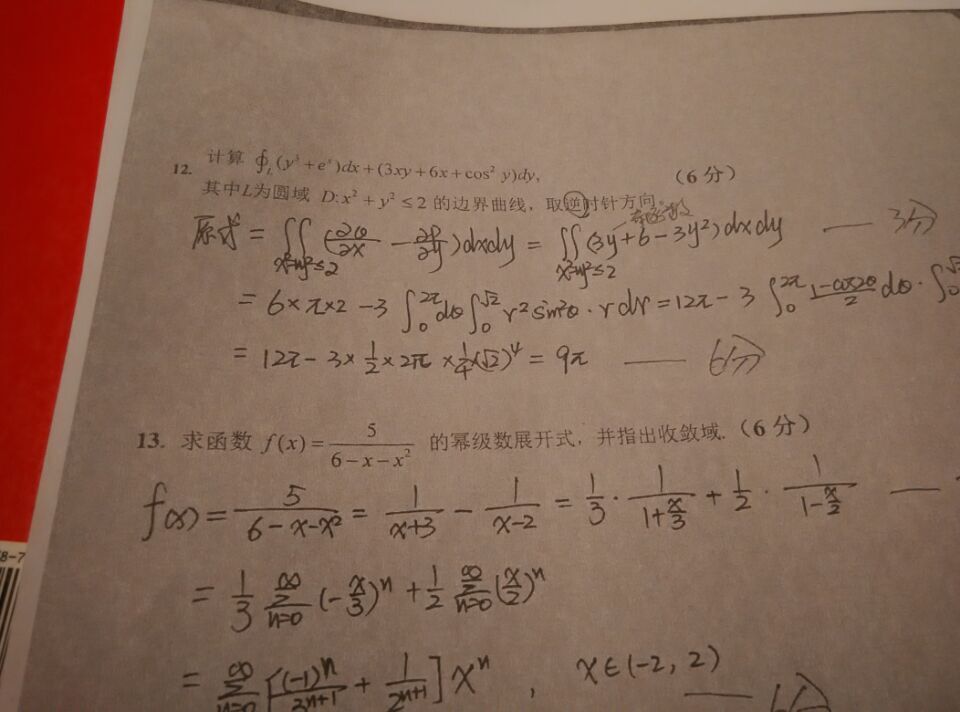 12. 计算 ∮_L (y³+eˣ)dx+(3xy+6x+cos² y)dy, (6分)
其中L为圆域 D:x²+y²≤2 的边界曲线，取逆时针方向。
奇函数
原式 = ∬_{x²+y²≤2} (∂Q/∂x − ∂P/∂y)dxdy = ∬_{x²+y²≤2} (3y+6−3y²)dxdy —— 3分
= 6×π×2 −3 ∫₀^{2π} dθ ∫₀^{√2} r² sin²θ · r dr = 12π − 3 ∫₀^{2π} (1−cos2θ)/2 dθ · ∫₀^{√2}
= 12π − 3× 1/2 ×2π × 1/4 (√2)⁴ = 9π —— 6分
13. 求函数 f(x)= 5/(6−x−x²) 的幂级数展开式，并指出收敛域.(6分)
f(x) = 5/(6−x−x²) = 1/(x+3) − 1/(x−2) = 1/3 · 1/(1+x/3) + 1/2 · 1/(1−x/2) ——
8-7
= 1/3 ∑_{n=0}^∞ (−x/3)ⁿ + 1/2 ∑_{n=0}^∞ (x/2)ⁿ
= ∑_{n=0}^∞ [(−1)ⁿ/3ⁿ⁺¹ + 1/2ⁿ⁺¹] xⁿ , x∈(−2, 2)
—— 6分